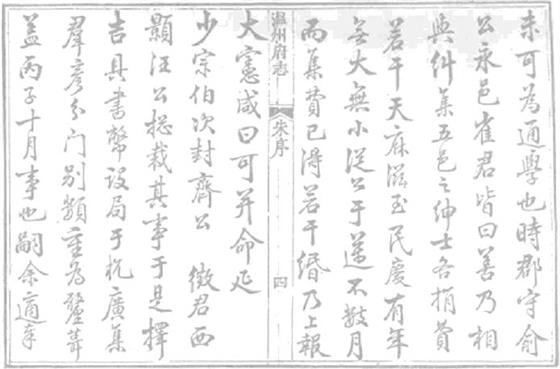 未可為通學也時郡守俞
公永邑崔君皆曰善乃相
與糾集五邑之紳士各捐貲
若干天庥滋至民慶有年
無大無小從公于邁不數月
而集費已得若干緡乃上報
温州府志
朱序
四
大憲咸曰可并命延
少宗伯次封齊公 徵君西
顥汪公總裁其事于是擇
吉具書幣設局于杭廣集
羣彥分門別類重為釐葺
蓋丙子十月事也嗣余適奉